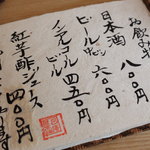 お飲み物
日本酒 八〇〇円
ビール中ビン 六〇〇円
ノンアルコールビール 四五〇円
紅芋酢ジュース 四〇〇円